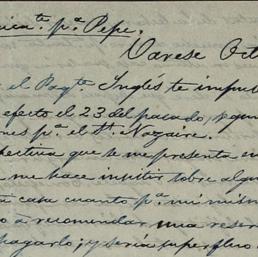 pª Pepe.
Varese Oct
el Paqte. Inglés te impu
efecto el 23 del pasado, segun
nes pª. el St. Nazaire.
que se me presenta en
me hace insistir sobre algu
casa cuanto pª. mi mism
a recomendar una reser
pagarlo; y seria superfluo